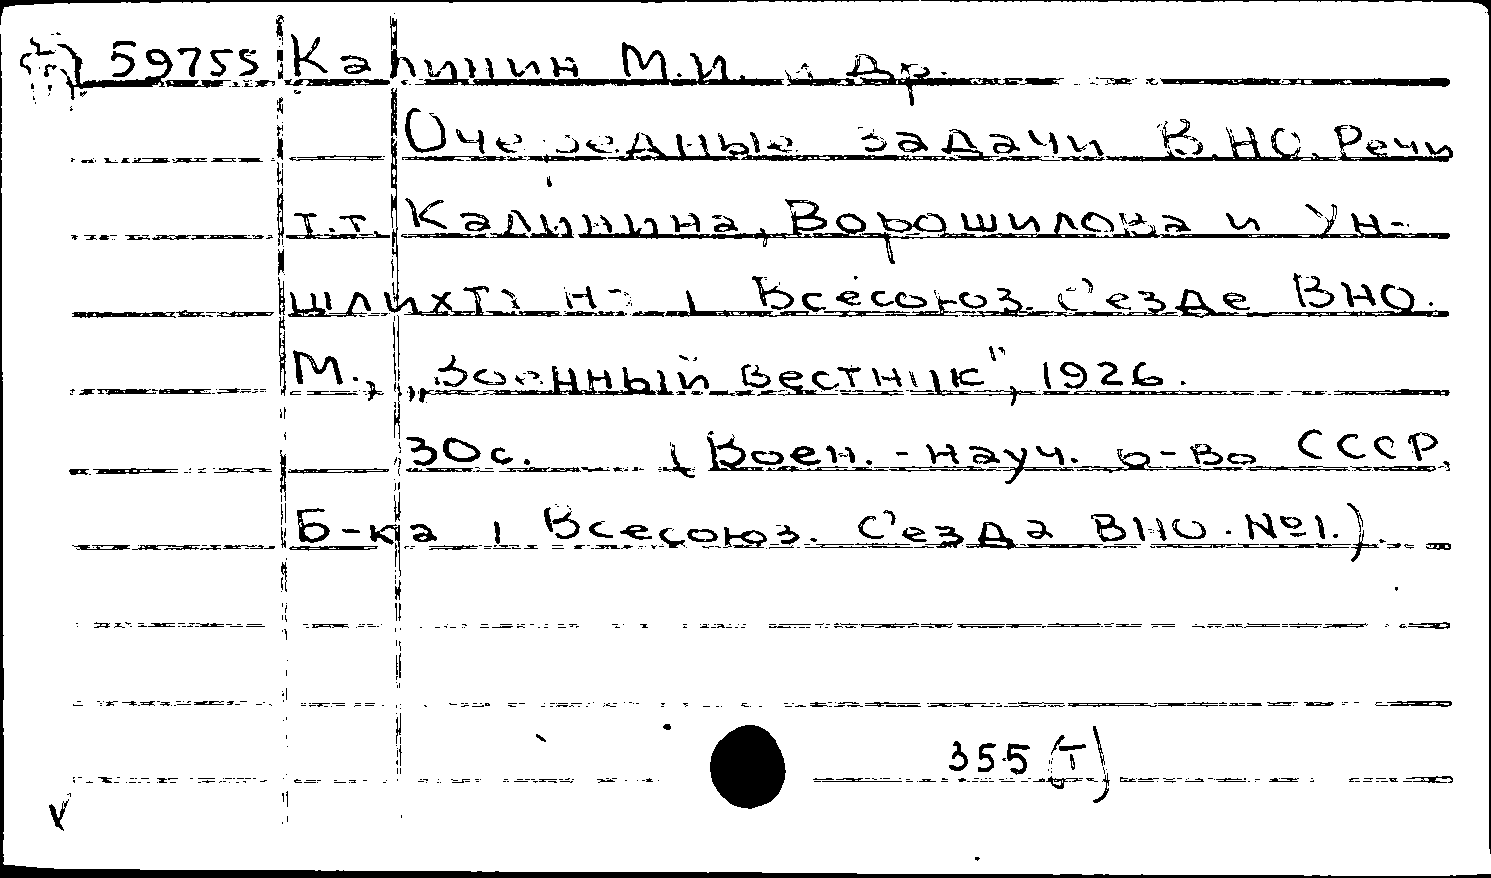 59755 Калинин М.И. и др.
Очередные задачи ВНО. Речи
т.т. Калинина, Ворошилова и Ун-
шлихта на I Всесоюз. с'езде ВНО.
М., „Военный вестник", 1926.
30с. (Воен.-науч. о-во СССР.
Б-ка I Всесоюз. с'езда ВНО. №1.).
355(Т)